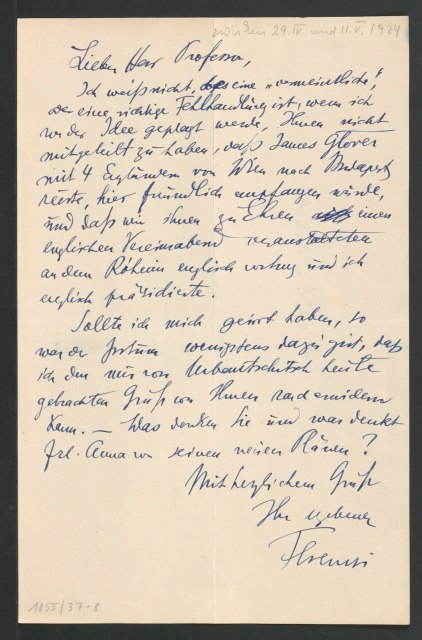 zwischen 29.IV und 11.V. 1924
Lieber Herr Professor,
Ich weiß nicht, ob es eine „vermeintliche",
oder eine richtige Fehlhandlung ist, wenn ich
von der Idee geplagt werde, Ihnen nicht
mitgeteilt zu haben, daß James Glover
mit 4 Engländern von Wien nach Budapest
reiste, hier freundlich empfangen wurde,
und daß wir ihnen zu Ehren einen
englischen Vereinsabend veranstalteten
an dem Róheim englisch vortrug und ich
englisch präsidierte.
Sollte ich mich geirrt haben, so
war der Irrtum wenigstens dazu gut, daß
ich den mir von Urbantschitsch heute
gebrachten Gruß von Ihnen rasch erwidern
kann. — Was denken Sie und was denkt
Frl. Anna von seinen neuen Plänen?
Mit herzlichem Gruß
Ihr ergebener
Ferenczi
1055/37-8